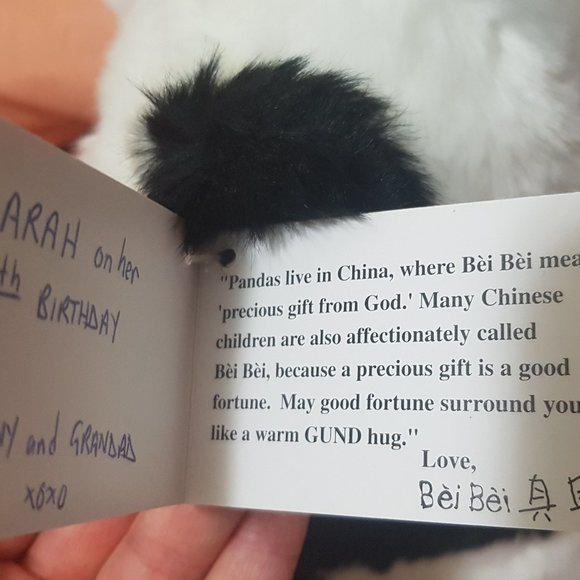 ARAH on her
th BIRTHDAY
Y and GRANDAD
xoxo
"Pandas live in China, where Bèi Bèi mea
'precious gift from God.' Many Chinese
children are also affectionately called
Bèi Bèi, because a precious gift is a good
fortune. May good fortune surround you
like a warm GUND hug."
Love,
Bèi Bèi